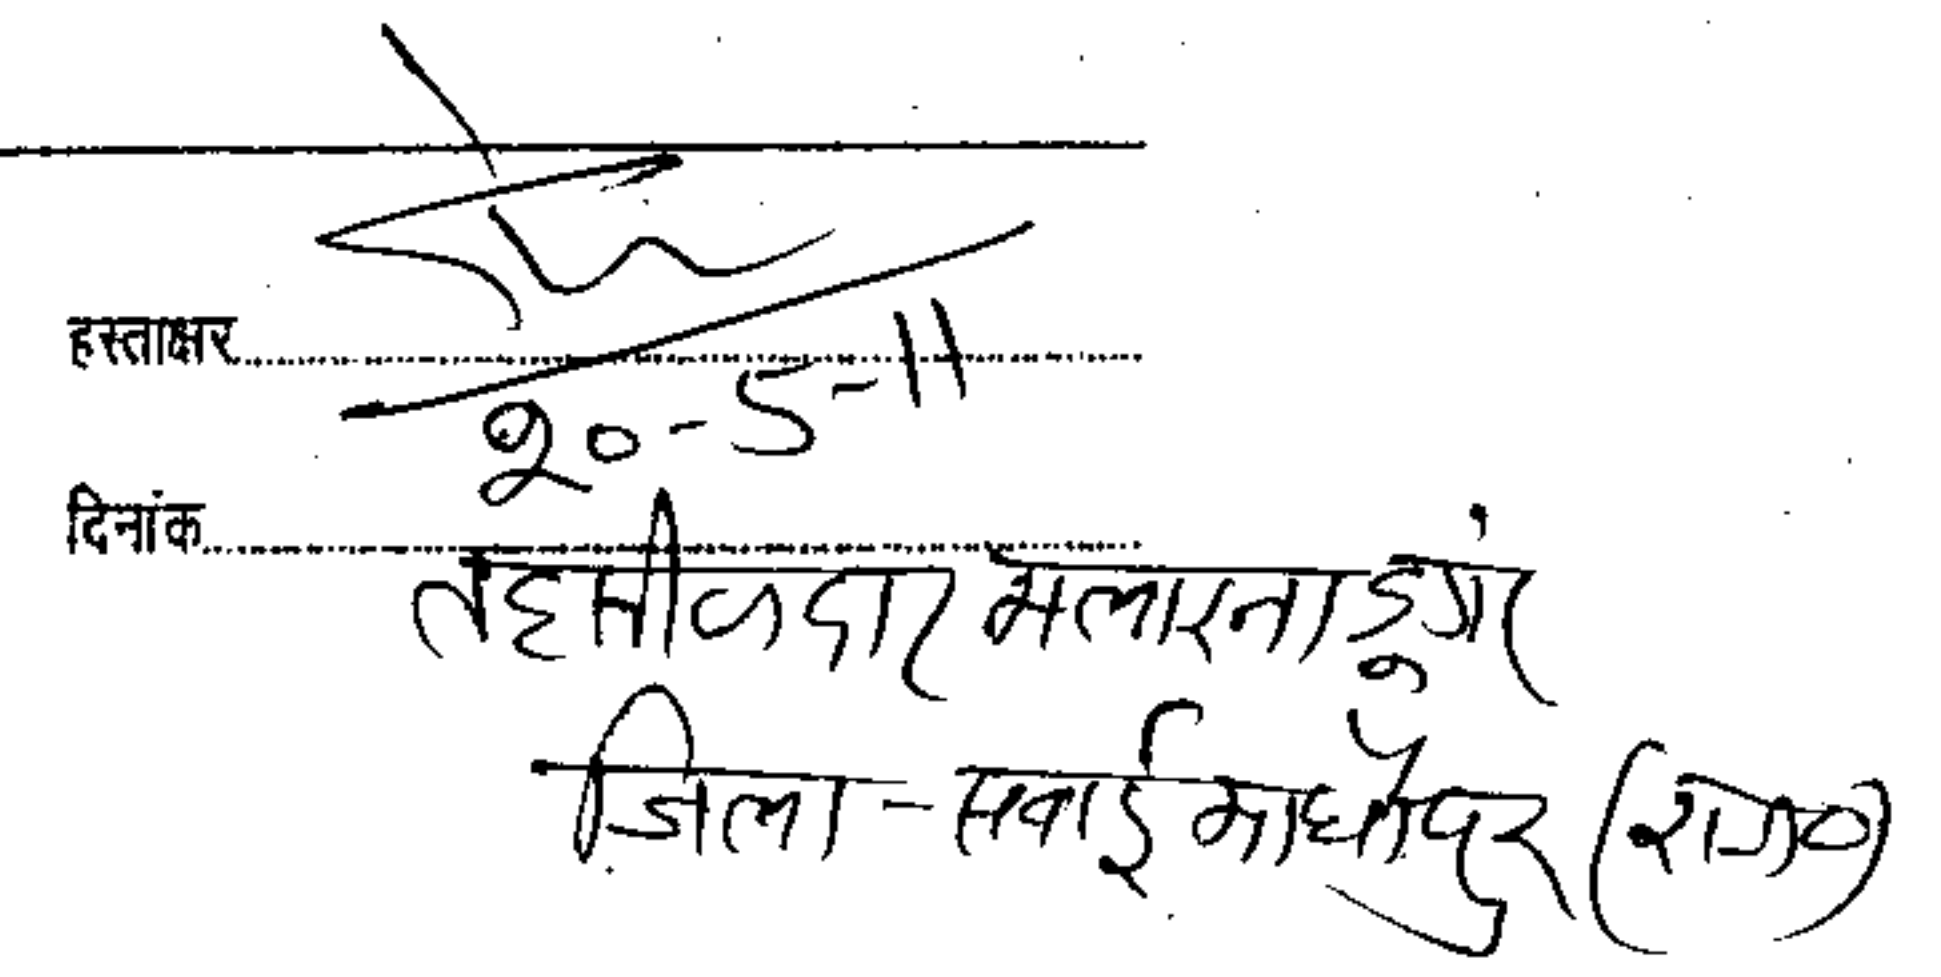 हस्ताक्षर
20-5-11
दिनांक
तहसीलदार मलारना डूंगर
जिला - सवाई माधोपुर (राज०)